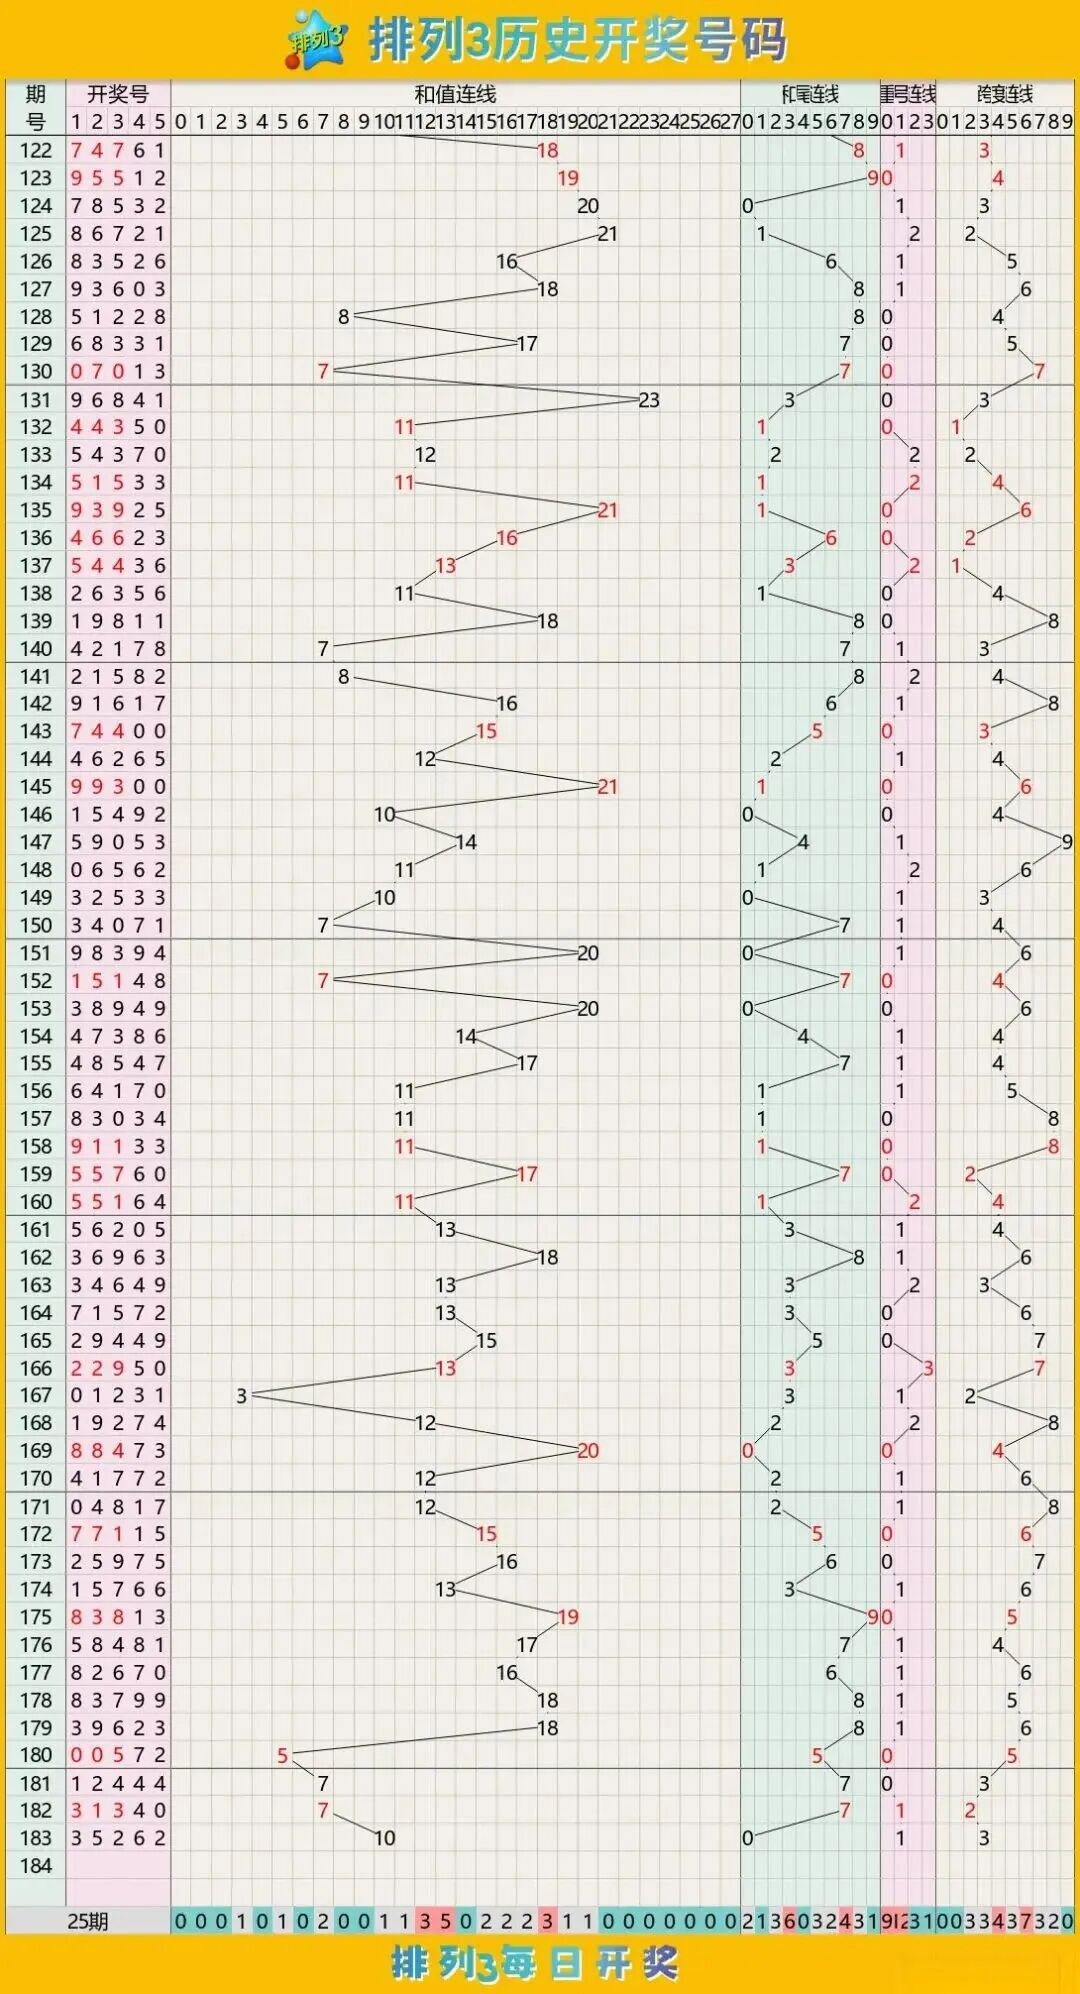 排列3 排列3历史开奖号码
期 开奖号 和值连线 和尾连线 重号连线 跨度连线
号 1 2 3 4 5 0 1 2 3 4 5 6 7 8 9 10 11 12 13 14 15 16 17 18 19 20 21 22 23 24 25 26 27 0 1 2 3 4 5 6 7 8 9 0 1 2 3 0 1 2 3 4 5 6 7 8 9
122 7 4 7 6 1 18 8 1 3
123 9 5 5 1 2 19 9 0 4
124 7 8 5 3 2 20 0 1 3
125 8 6 7 2 1 21 1 2 2
126 8 3 5 2 6 16 6 1 5
127 9 3 6 0 3 18 8 1 6
128 5 1 2 2 8 8 8 0 4
129 6 8 3 3 1 17 7 0 5
130 0 7 0 1 3 7 7 0 7
131 9 6 8 4 1 23 3 0 3
132 4 4 3 5 0 11 1 0 1
133 5 4 3 7 0 12 2 2 2
134 5 1 5 3 3 11 1 2 4
135 9 3 9 2 5 21 1 0 6
136 4 6 6 2 3 16 6 0 2
137 5 4 4 3 6 13 3 2 1
138 2 6 3 5 6 11 1 0 4
139 1 9 8 1 1 18 8 0 8
140 4 2 1 7 8 7 7 1 3
141 2 1 5 8 2 8 8 2 4
142 9 1 6 1 7 16 6 1 8
143 7 4 4 0 0 15 5 0 3
144 4 6 2 6 5 12 2 1 4
145 9 9 3 0 0 21 1 0 6
146 1 5 4 9 2 10 0 0 4
147 5 9 0 5 3 14 4 1 9
148 0 6 5 6 2 11 1 2 6
149 3 2 5 3 3 10 0 1 3
150 3 4 0 7 1 7 7 1 4
151 9 8 3 9 4 20 0 1 6
152 1 5 1 4 8 7 7 0 4
153 3 8 9 4 9 20 0 0 6
154 4 7 3 8 6 14 4 1 4
155 4 8 5 4 7 17 7 1 4
156 6 4 1 7 0 11 1 1 5
157 8 3 0 3 4 11 1 0 8
158 9 1 1 3 3 11 1 0 8
159 5 5 7 6 0 17 7 0 2
160 5 5 1 6 4 11 1 2 4
161 5 6 2 0 5 13 3 1 4
162 3 6 9 6 3 18 8 1 6
163 3 4 6 4 9 13 3 2 3
164 7 1 5 7 2 13 3 0 6
165 2 9 4 4 9 15 5 0 7
166 2 2 9 5 0 13 3 3 7
167 0 1 2 3 1 3 3 1 2
168 1 9 2 7 4 12 2 2 8
169 8 8 4 7 3 20 0 0 4
170 4 1 7 7 2 12 2 1 6
171 0 4 8 1 7 12 2 1 8
172 7 7 1 1 5 15 5 0 6
173 2 5 9 7 5 16 6 0 7
174 1 5 7 6 6 13 3 1 6
175 8 3 8 1 3 19 9 0 5
176 5 8 4 8 1 17 7 1 4
177 8 2 6 7 0 16 6 1 6
178 8 3 7 9 9 18 8 1 5
179 3 9 6 2 3 18 8 1 6
180 0 0 5 7 2 5 5 0 5
181 1 2 4 4 4 7 7 0 3
182 3 1 3 4 0 7 7 1 2
183 3 5 2 6 2 10 0 1 3
184
25期 0 0 0 1 0 1 0 2 0 0 1 1 3 5 0 2 2 2 3 1 1 0 0 0 0 0 0 0 2 1 3 6 0 3 2 4 3 1 9 12 3 1 0 0 3 3 4 3 7 3 2 0
排列3每日开奖